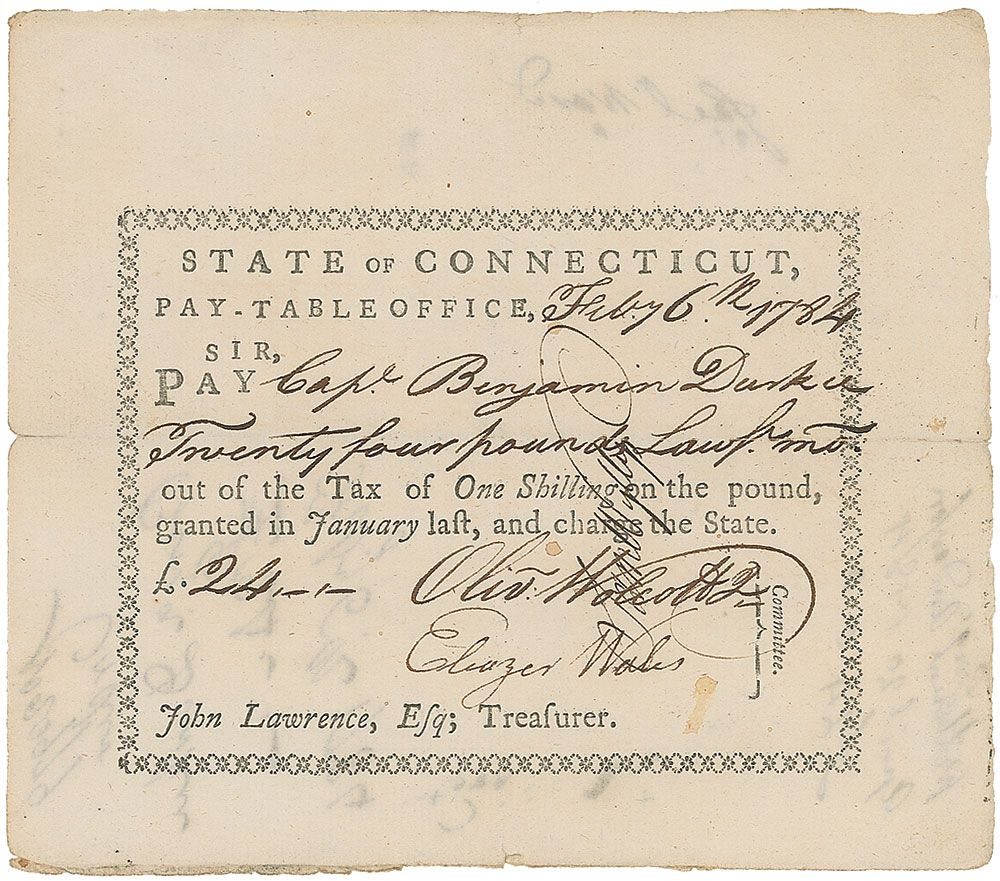 STATE OF CONNECTICUT,
PAY-TABLE OFFICE, Feby 6th 1784
SIR,
PAY Capt Benjamin Durkee
Twenty four pounds Lawf. mo.
out of the Tax of One Shilling on the pound,
granted in January laſt, and charge the State.
£. 24,–,–
Olivr Wolcott Jr
Eleazer Wales
Committee.
John Lawrence, Eſq; Treaſurer.